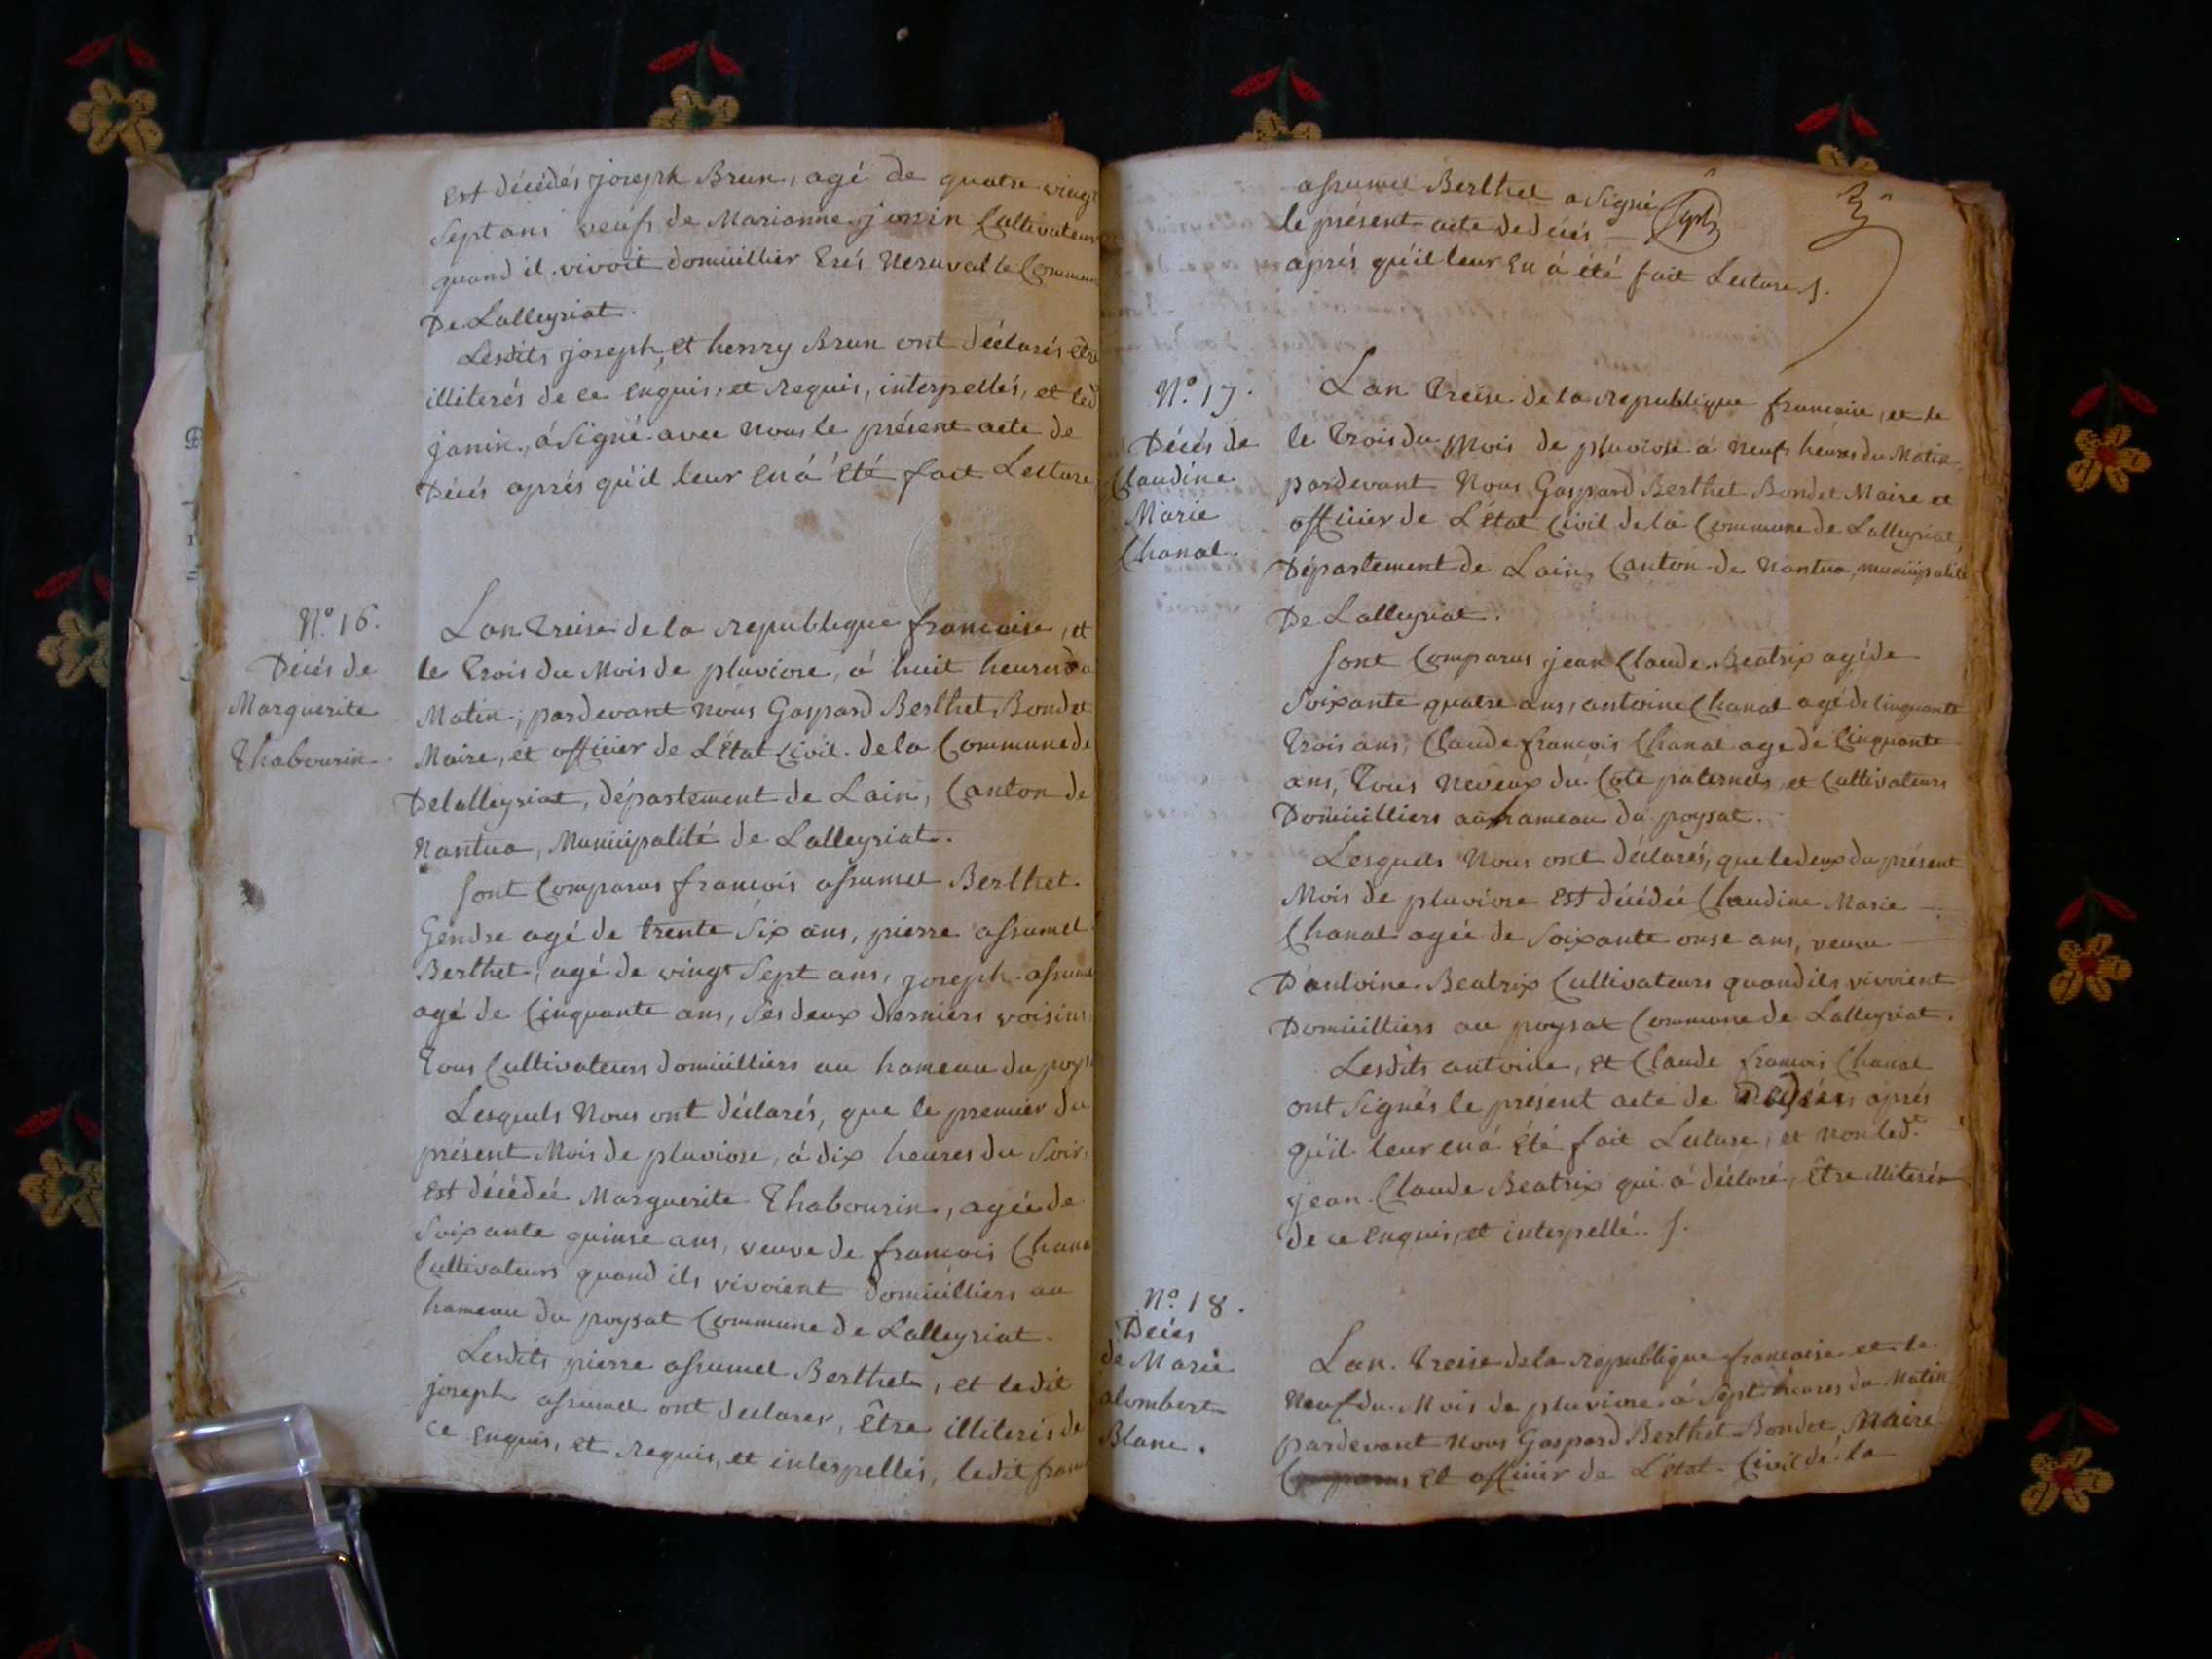 Est décédés joseph Brun, agé de quatre vingt
Sept ans veufs de Marianne jonsin Cultivateurs
quand il vivoit domicillier Erés Neruval le Commune
De Lalleyriat.
Lesdits joseph, et henry Brun ont déclarés être
illiterés de ce Enquis, et requis, interpellés, et led
janin, à Signé avec Nous le présent acte de
Décés aprés qu'il leur en á été fait Lecture
N.o 16.
Décés de
Marguerite
Thabourin.
Lan treise de la republique francaise, et
le trois du Mois de pluviose, á huit heures du
Matin, pardevant nous Gaspard Berthet Bondet
Maire, et officier de L'état Civil de la Commune de
Delalleyriat, département de Lain, Canton de
Nantua, Municipalité de Lalleyriat.
Sont Comparus francois assumel Berthet
Gendre agé de trente Six ans, pierre assumel
Berthet, agé de vingt Sept ans, joseph assumel
agé de Cinquante ans, Ses deux derniers voisins,
tous Cultivateurs domicilliers au hameau du poys
Lesquels Nous ont déclarés, que le premier du
présent Mois de pluviose, á dix heures du Soir,
est décédée Marguerite Thabourin, agée de
Soixante quinse ans, veuve de francois Chana
Cultivateurs quand ils vivoient domicilliers au
hameau du poysat Commune de Lalleyriat.
Lesdits pierre assumel Berthet, et ledit
joseph assumel ont declarer, être illiterés de
ce Enquis, et requis, et interpellés, ledit fran
assumel Berthet a Signé
le présent acte dedécés
aprés qu'il leur en á été fait Lecture.
N.o 17.
Décés de
Claudine
Marie
Chanal.
Lan treise de la republique francaise, et le
le trois du Mois de pluviose á neufs heures du Matin,
pardevant Nous Gaspard Berthet Bondet Maire et
officier de L'état Civil de la Commune de Lalleyriat,
Département de Lain, Canton de Nantua, municipalité
De Lalleyriat.
Sont Comparus jean Claude Beatrix agé de
Soixante quatre ans, antoine Chanal agé de Cinquante
trois ans, Claude francois Chanal age de Cinquante
ans, tous Neveux du Coté paternels, et Cultivateurs
Domicilliers au hameau du poysat.
Lesquels Nous ont déclarés, que le deux du présent
Mois de pluviose Est décédée Claudine Marie
Chanal agée de Soixante onse ans, veuve
D'antoine Beatrix Cultivateurs quand ils vivoient
Domicilliers au poysat Commune de Lalleyriat.
Lesdits antoine, et Claude francois Chanal
ont Signés le présent acte de Décés aprés
qu'il leur en á Eté fait Lecture, et non led.
jean Claude Beatrix qui á déclaré, être illiterés
de ce Enquis, et interpellé.
N.o 18.
Décés
de Marie
alombert
Blanc.
Lan treise de la république francaise et le
Neuf du Mois de pluviose á Sept heures du Matin
pardevant Nous Gaspard Berthet Bondet Maire
et officier de L'état Civil de la